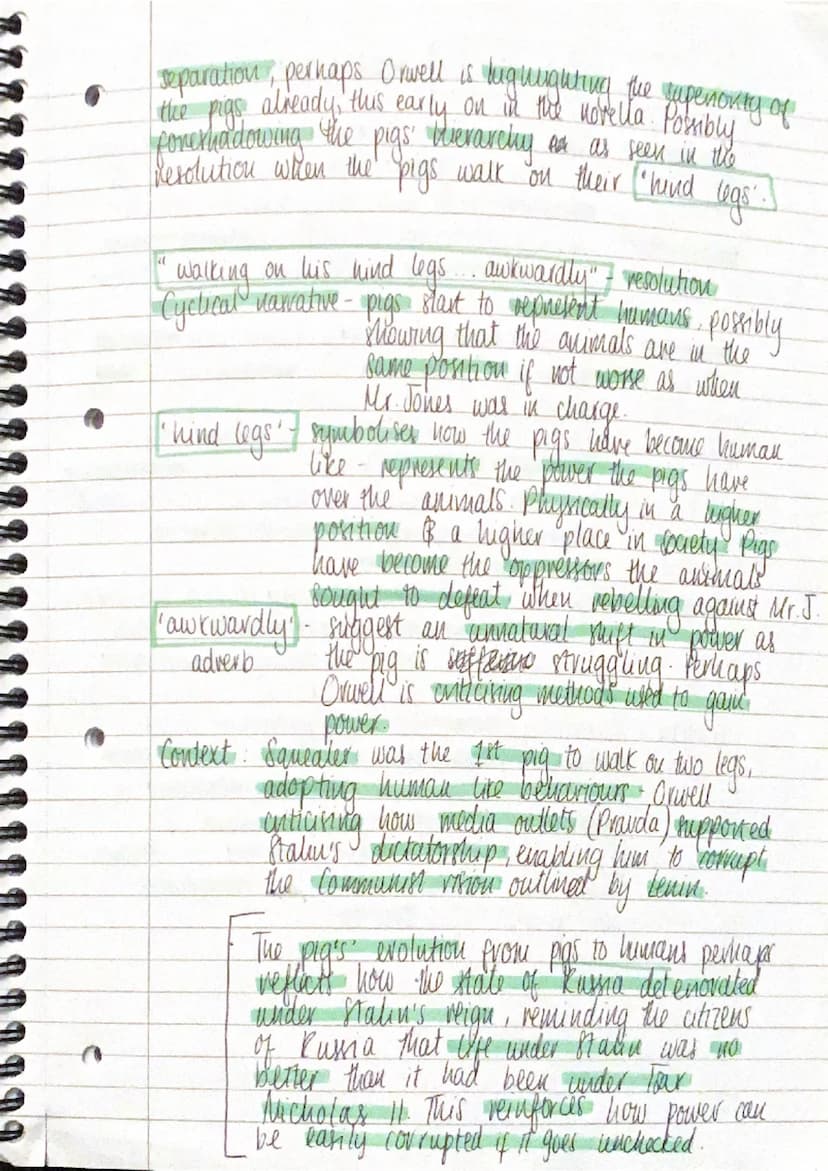 separation, perhaps Orwell is highlighting the superiority of
the pigs already, this early on in the novella. Possibly
foreshadowing the pigs' hierarchy as seen in the
resolution when the pigs walk on their 'hind legs'.
"walking on his hind legs... awkwardly" - resolution
Cyclical narrative - pigs start to represent humans, possibly
showing that the animals are in the
same position if not worse as when
Mr. Jones was in charge.
'hind legs' - symbolises how the pigs have become human
like - represents the power the pigs have
over the animals. Physically in a higher
position & a higher place in society. Pigs
have become the oppressors the animals
sought to defeat when rebelling against Mr. J.
'awkwardly' - suggest an unnatural shift in power as
adverb the pig is struggling. Perhaps
Orwell is criticising methods used to gain
power.
Context: Squealer was the 1st pig to walk on two legs,
adopting human like behaviours - Orwell
criticising how media outlets (Pravda) supported
Stalin's dictatorship, enabling him to corrupt
the communist vision outlined by Lenin.
The pig's' evolution from pigs to humans perhaps
reflects how the state of Russia deteriorated
under Stalin's reign, reminding the citizens
of Russia that life under Stalin was no
better than it had been under Tsar
Nicholas II. This reinforces how power can
be easily corrupted if it goes unchecked.